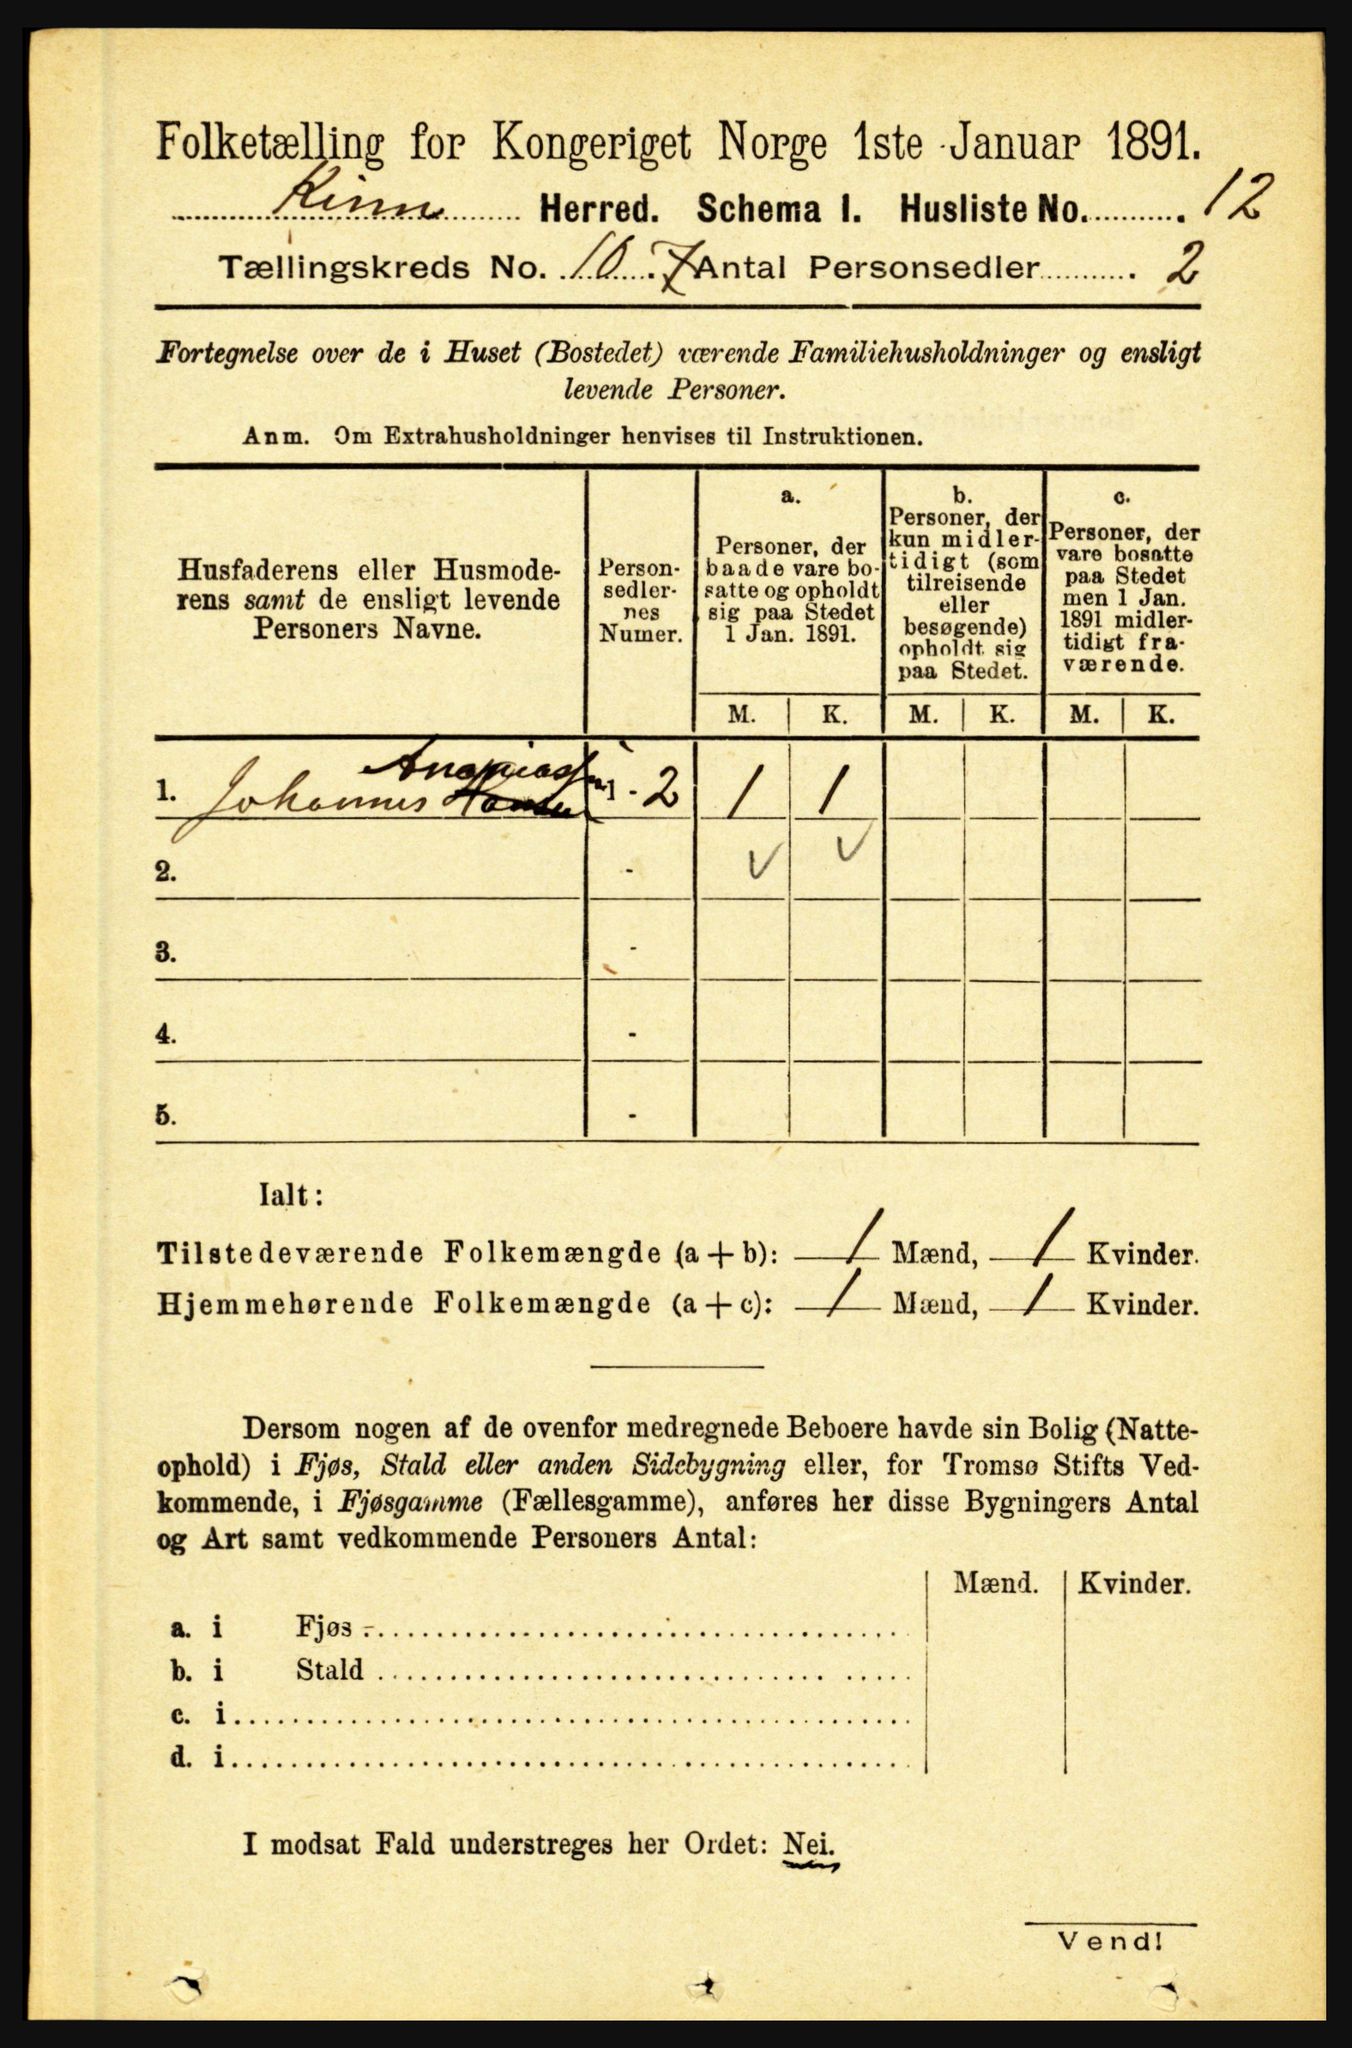 Folketælling for Kongeriget Norge 1ste Januar 1891.
Kinn Herred. Schema I. Husliste No. 12
Tællingskreds No. 10. 7 Antal Personsedler 2
Fortegnelse over de i Huset (Bostedet) værende Familiehusholdninger og ensligt
levende Personer.
Anm. Om Extrahusholdninger henvises til Instruktionen.
Husfaderens eller Husmode-
rens samt de ensligt levende
Personers Navne.
Person-
sedler-
nes
Numer.
a.
Personer, der
baade vare bo-
satte og opholdt
sig paa Stedet
1 Jan. 1891.
b.
Personer, der
kun midler-
tidigt (som
tilreisende
eller
besøgende)
opholdt sig
paa Stedet.
c.
Personer, der
vare bosatte
paa Stedet
men 1 Jan.
1891 midler-
tidigt fra-
værende.
M. K. M. K. M. K.
Ananiassen
1. Johannes Hansen 1 - 2 1 1
2. - v v
3. -
4. -
5. -
Ialt:
Tilstedeværende Folkemængde (a + b): 1 Mænd, 1 Kvinder.
Hjemmehørende Folkemængde (a + c): 1 Mænd, 1 Kvinder.
Dersom nogen af de ovenfor medregnede Beboere havde sin Bolig (Natte-
ophold) i Fjøs, Stald eller anden Sidebygning eller, for Tromsø Stifts Ved-
kommende, i Fjøsgamme (Fællesgamme), anføres her disse Bygningers Antal
og Art samt vedkommende Personers Antal:
Mænd. Kvinder.
a. i Fjøs
b. i Stald
c. i
d. i
I modsat Fald understreges her Ordet: Nei.
Vend!